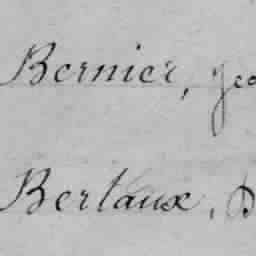 Bernier,
Bertaux,